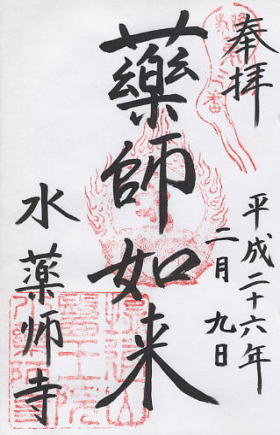 奉拝
平成二十六年
二月九日
藥師如来
水薬师寺